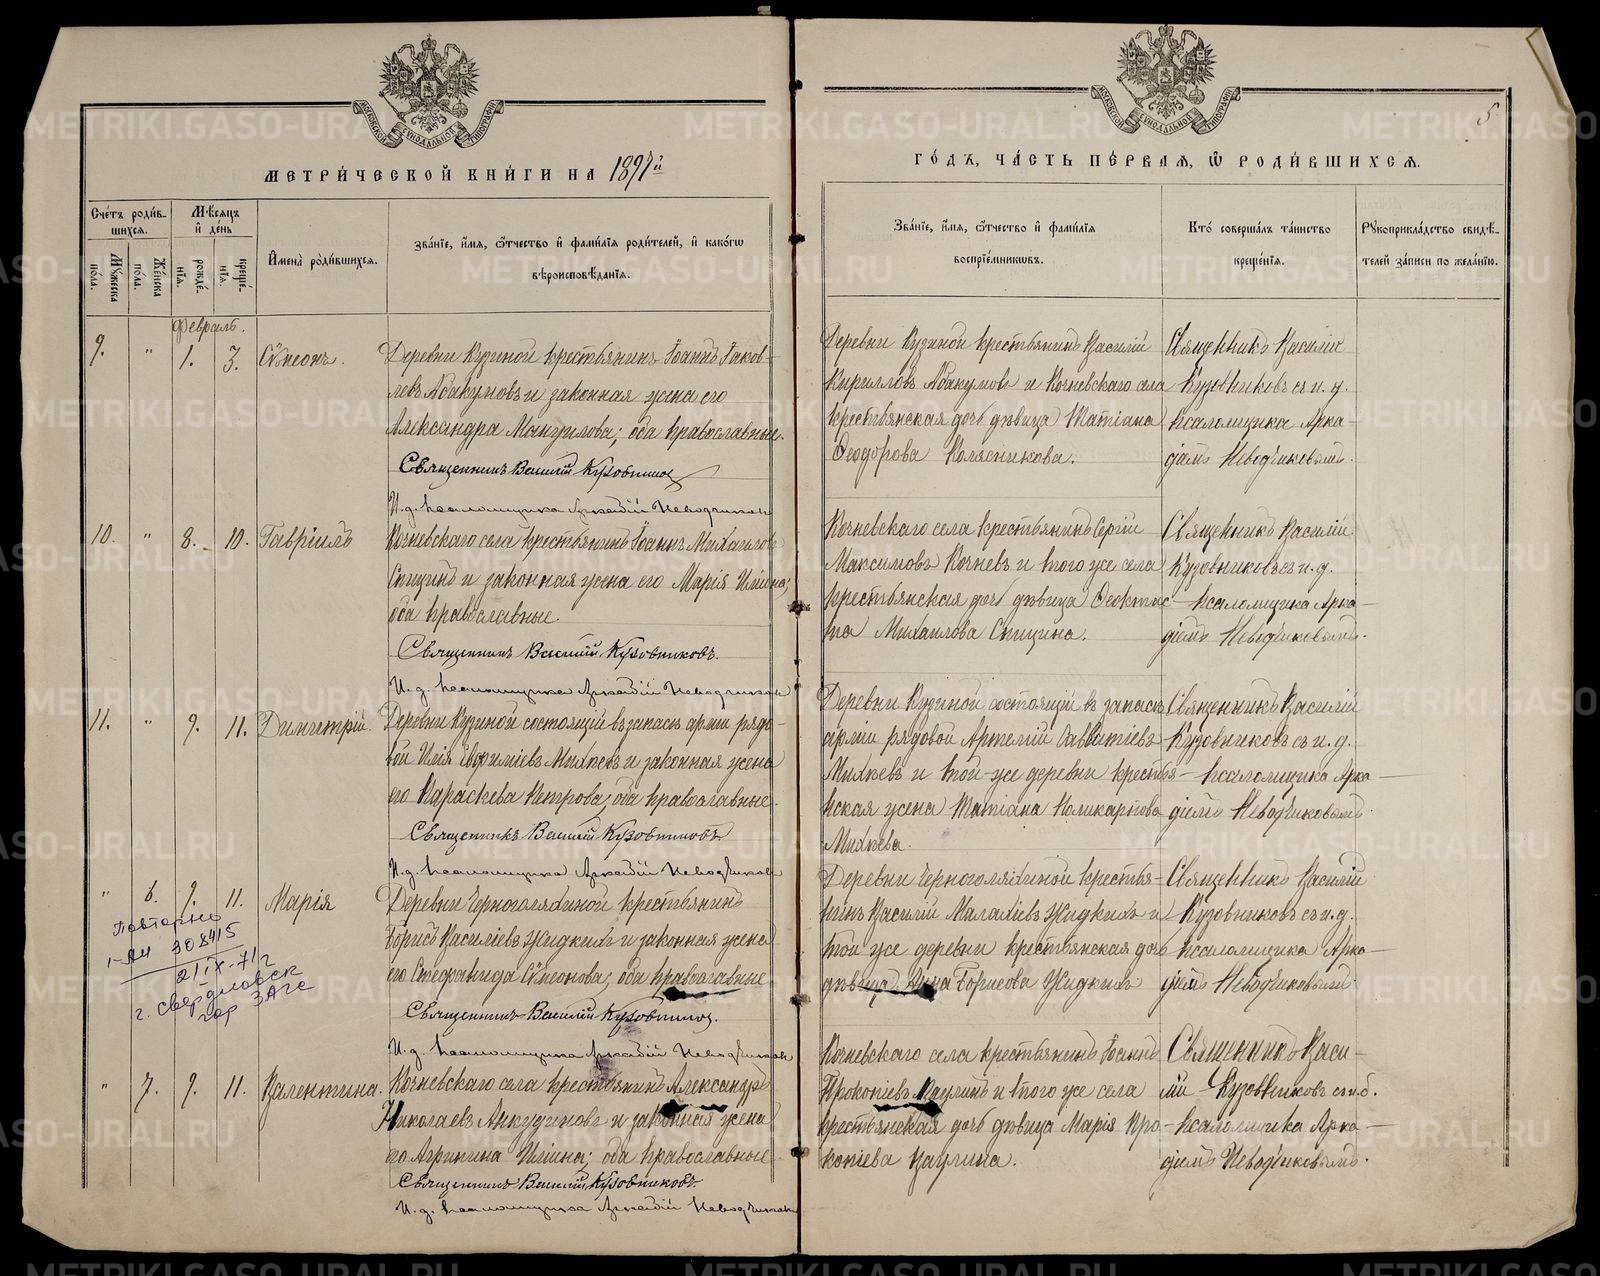 МЕТРИ́ЧЕСКОЙ КНИ́ГИ НА 1897й
ГО́ДЪ, ЧА́СТЬ ПЕ́РВАЯ, Ѿ РОДИ́ВШИХСЯ.
5
Сче́тъ роди́в-
шихся.
Му́жеска пола.
Же́нска пола.
Мѣсяцъ и де́нь
рожде́-
нїя.
креще́-
нїя.
И҆мена̀ роди́вшихся.
Зва́нїе, и҆́мя, ѻ҆́тчество и҆ фами́лїя роди́телей, и҆ како́гѡ
вѣроисповѣ́данїя.
Зва́нїе, и҆́мя, ѻ҆́тчество и҆ фами́лїя
воспрїе́мникѡвъ.
Кто̀ соверша́лъ та́инство
креще́нїя.
Рꙋкоприкла́дство свидѣ́-
телей за́писи по жела́нїю.
Февраль.
9. " 1. 3. Сѵмеонъ.
Деревни Кузиной крестьянинъ Іоаннъ Іаков-
левъ Абакумовъ и законная жена его
Александра Мануилова; оба православные.
Священникъ Василій Кузовниковъ
И.д. псаломщика Аркадій Неводчиковъ
Деревни Кузиной крестьянинъ Василій
Кирилловъ Абакумовъ и Кочневскаго села
крестьянская дочь дѣвица Татіана
Ѳеодорова Колясникова.
Священникъ Василій
Кузовниковъ съ и. д.
псаломщика Арка-
діемъ Неводчиковымъ.
10. " 8. 10. Гавріилъ
Кочневскаго села крестьянинъ Іоаннъ Михаиловъ
Спицинъ и законная жена его Марія Иліина;
оба православные.
Священникъ Василій Кузовниковъ.
И.д. псаломщика Аркадій Неводчиковъ
Кочневскаго села крестьянинъ Сергій
Максимовъ Кочневъ и того же села
крестьянская дочь дѣвица Ѳеоктис-
та Михаилова Спицина.
Священникъ Василій
Кузовниковъ съ и. д.
псаломщика Арка-
діемъ Неводчиковымъ.
11. " 9. 11. Димитрій.
Деревни Кузиной состоящій въ запасѣ арміи рядо-
вой Илія Евфиміевъ Михѣевъ и законная жена
его Параскева Петрова; оба православные.
Священникъ Василій Кузовниковъ
И.д. псаломщика Аркадій Неводчиковъ
Деревни Кузиной состоящій въ запасѣ
арміи рядовой Артемій Савватіевъ
Михѣевъ и той-же деревни крестья-
нская жена Татіана Поликарпова
Михѣева.
Священникъ Василій
Кузовниковъ съ и. д.
псаломщика Арка-
діемъ Неводчиковымъ.
" 6. 9. 11. Марія
Деревни Черноголяхиной крестьянинъ
Борисъ Василіевъ Жидкихъ и законная жена
его Стефанида Сѵмеонова; оба православные
Священникъ Василій Кузовниковъ.
И.д. псаломщика Аркадій Неводчиковъ
Деревни Черноголяхиной крестья-
нинъ Василій Малахіевъ Жидкихъ и
той же деревни крестьянская дочь
дѣвица Анна Борисова Жидкихъ
Священникъ Василій
Кузовниковъ съ и.д.
псаломщика Арка-
діемъ Неводчиковымъ
Повторно
I-АИ 308415
21/IX-71г
г. Свердловск
гор ЗАГС
" 7. 9. 11. Валентина.
Кочневскаго села крестьянинъ Александръ
Николаевъ Анкудиновъ и законная жена
его Агрипина Иліина; оба православные
Священникъ Василій Кузовниковъ.
И.д. псаломщика Аркадій Неводчиковъ
Кочневскаго села крестьянинъ Іоаннъ
Прокопіевъ Ваулинъ и того же села
крестьянская дочь дѣвица Марія Про-
копіева Ваулина.
Священникъ Васи-
лій Кузовниковъ съ и.д.
псаломщика Арка-
діемъ Неводчиковымъ.
METRIKI.GASO-URAL.RU